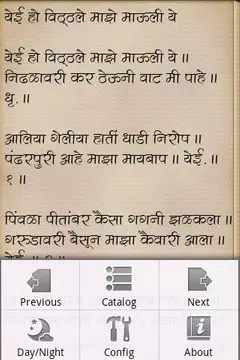 येई हो विठ्ठले माझे माऊली ये
येई हो विठ्ठले माझे माऊली ये ॥
निढळावरी कर ठेऊनी वाट मी पाहे ॥
धृ. ॥
आलिया गेलीया हातीं धाडी निरोप ॥
पंढरपुरी आहे माझा मायबाप ॥ येई. ॥
१ ॥
पिंवळा पीतांबर कैसा गगनी झळकला ॥
गरुडावरी बैसून माझा कैवारी आला ॥
Previous Catalog Next
Day/Night Config About